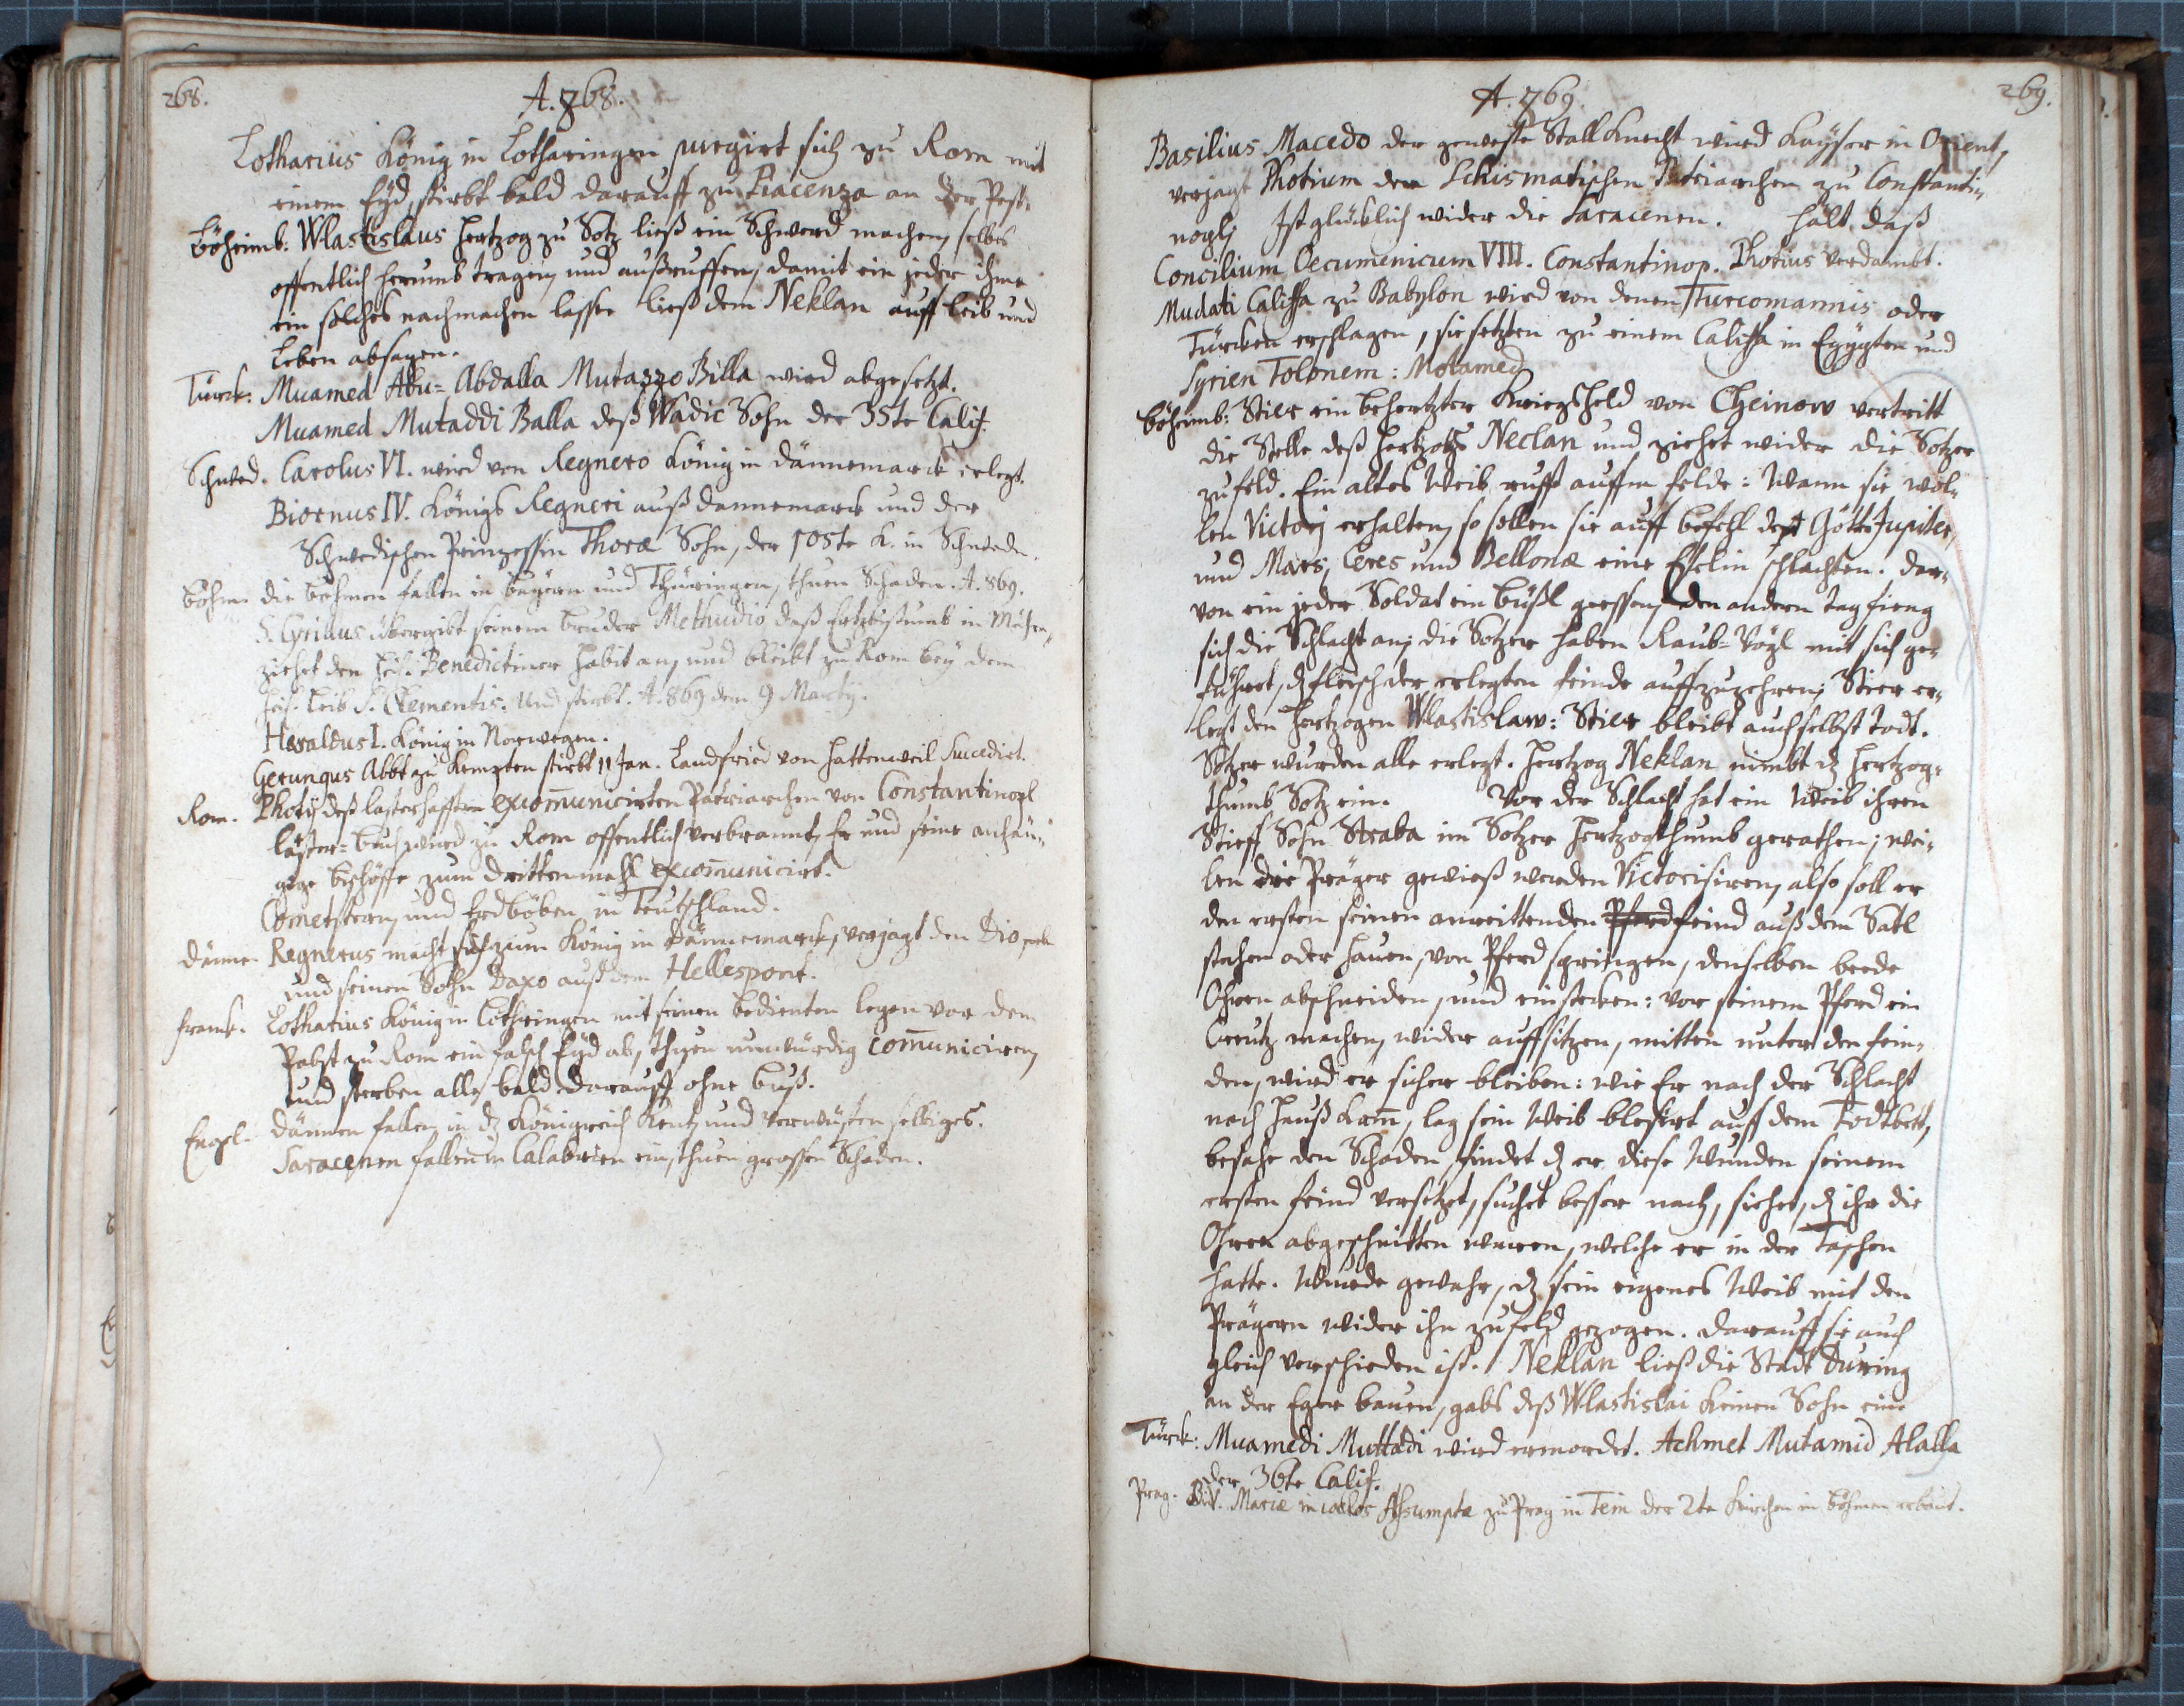 268.
A. 868.
Lotharius König in Lotharingen purgirt sich zu Rom mit
einem Eyd, stirbt bald darauff zu Piacenza an der Pest.
Böheimb: Wlastislaus Hertzog zu Sotz ließ ein Schwerd machen, selbes
offentlich herumb tragen, und außruffen, damit ein jeder ihme
ein solches nachmachen lasse ließ dem Neklan auff leib und
Leben absagen.
Türck: Muamed Abu-Abdalla Mutazzo Billa wird abgesetzt.
Muamed Mutaddi Balla deß Wadic Sohn der 35te Calif.
Schwed. Carolus VI. wird von Regnero König in Dännemarck erlegt.
Biornus IV. Königs Regneri auß Dannemarck und der
Schwedischen Prinzessin Thoræ Sohn, der 105te K. in Schweden.
Böhm. die Böhmen fallen in Bayern und Thüringen, thuen Schaden. A. 869.
S. Cyrillus übergibt seinem bruder Methudio daß Ertzbistumb in Mähren,
ziehet den heil: Benedictiner habit an, und bleibt zu Rom bey dem
heil. Leib S. Clementis. Und stirbt. A. 869 dem 9 Martij.
Heraldus I. König in Norwegen.
Gerungus Abbt zu Kempten stirbt 11 Jan. Landfried von Hattenweil Succedirt.
Rom. Photij deß lasterhafften excom̄unicirten Patriarchen von Constantinopl
läster-buch wird zu Rom offentlich verbrannt, Er und seine anhän-
gige bischöffe zum drittenmahl excom̄unicirt.
Cometstern, und Erdböben in Teutschland.
Dänne. Regnerus macht sich zum König in Dännemarck, verjagt den Dio
und seinen Sohn Daxo auß dem Hellespont.
Franck. Lotharius König in Lothringen mit seinen bedienten legen vor dem
Pabst zu Rom ein falsch Eyd ab, thuen unwürdig com̄uniciren,
und sterben alle bald darauff ohne buß.
Engl. Dännen fallen in dz Königreich Kent, und verwüsten selbiges.
Saracenen fallen in Calabrien ein, thuen grossen Schaden.
269.
A. 869.
Basilius Macedo der geweste Stallknecht wird Kayser in Orient,
verjagt Photium den Schismatischen Patriarchen zu Constanti-
nopl, Ist glücklich wider die Saracenen. hält daß
Concilium Oecumenicum VIII. Constantinop. Photius verdambt.
Mudati Califfa zu Babylon wird von denen Turcomannis oder
Türcken erschlagen, sie setzten zu einem Califfa in Egypten und
Syrien Tolonem: Motamed
Böheimb: Stier ein behertzter Kriegsheld von Cheinow vertritt
die Stelle deß Hertzogs Neclan und ziehet wider die Sotzer
zufeld. Ein altes Weib rufft auffm felde: Wann sie wol-
len Victori erhalten, so sollen sie auff befehl deß Götter Jupiter,
und Mars, Ceres und Bellonæ eine Eselin schlachten. dar-
von ein jeder Soldat ein bißl gessen, den andern tag fieng
sich die Schlacht an, die Sotzer haben Raub-Vögl mit sich ge-
führet, dz fleisch der erlegten feinde auffzuzehren; Stier er-
legt den Hertzogen Wlastislaw: Stier bleibt auch selbst todt.
Sotzer wurden alle erlegt. Hertzog Neklan nimbt dz Hertzog-
thumb Sotz ein. Vor der Schlacht hat ein Weib ihren
Stieff Sohn Straba im Sotzer Hertzogthumb gerathen; wei-
len die Präger gewiß werden Victorisiren, also soll er
den ersten seinen anreittenden Pferd feind auß dem Satl
stechen oder hauen, von Pferd springen, denselben beede
Ohren abschneiden, und einstecken: vor seinem Pferd ein
Creutz machen, wider auffsitzen, mitten unter den fein-
den, wird er sicher bleiben: wie Er nach der Schlacht
nach Hauß kam, lag sein Weib blesirt auff dem Todtbett,
besahe den Schaden, findet dz er diese Wunden seinem
ersten feind versetzet, suchet besser nach, siehet, dz ihr die
Ohren abgeschnitten waren, welche er in der Taschen
hatte. Wurde gewahr, dz sein eigenes Weib mit den
Prägern wider ihn zufeld gezogen. darauff sie auch
gleich verschieden ist. Neklan ließ die Stadt During
an der Eger bauen, gabs deß Wlastislai kleinen Sohn ein.
Türck: Muamedi Muttadi wird ermordet. Achmet Mutamid Alalla
der 36te Calif.
Prag. Div. Mariæ in cœlos Assumptæ zu Prag in Tein der 2te Kirchen in Böhmen erbaut.